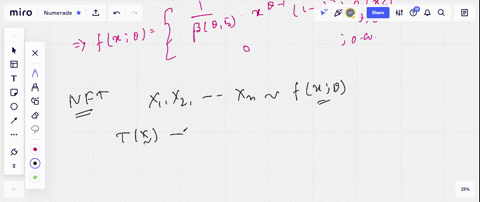 miro Numerade Share
⇒ f(x; θ) = { 1/β(θ, 5) · x^(θ-1) (1 -
0 ; o.w.
NFT X₁, X₂, -- Xₙ ~ f(x; θ)
T(X) —
25%